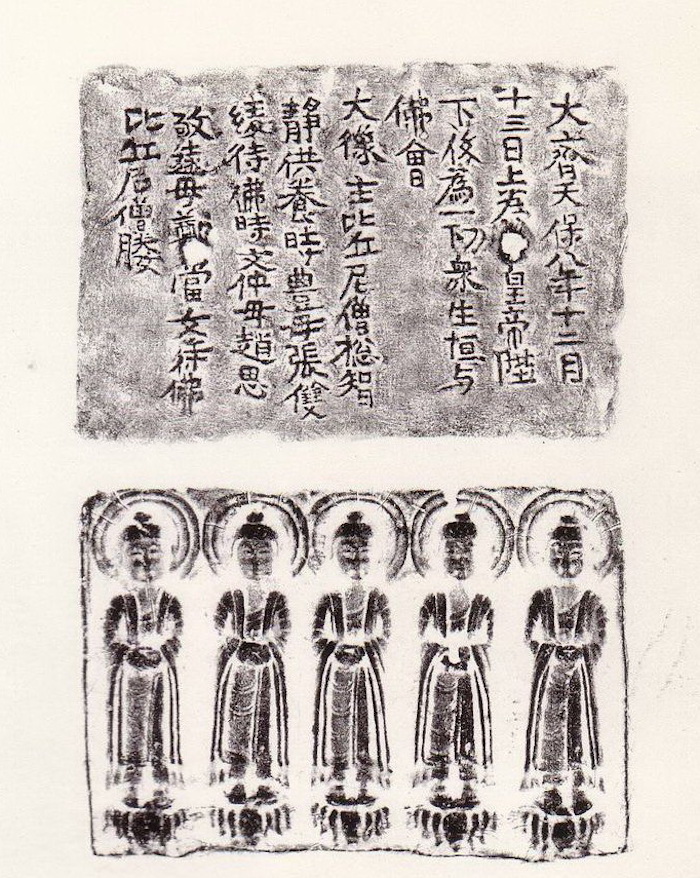 大齊天保八年十二月
十三日上為皇帝陛
下後為一切衆生恒与
佛會
大像主比丘尼僧惣智
靜供養時豊母張雙
待佛時文仲母趙思
敬遠母鄭當女侍佛
比丘尼僧